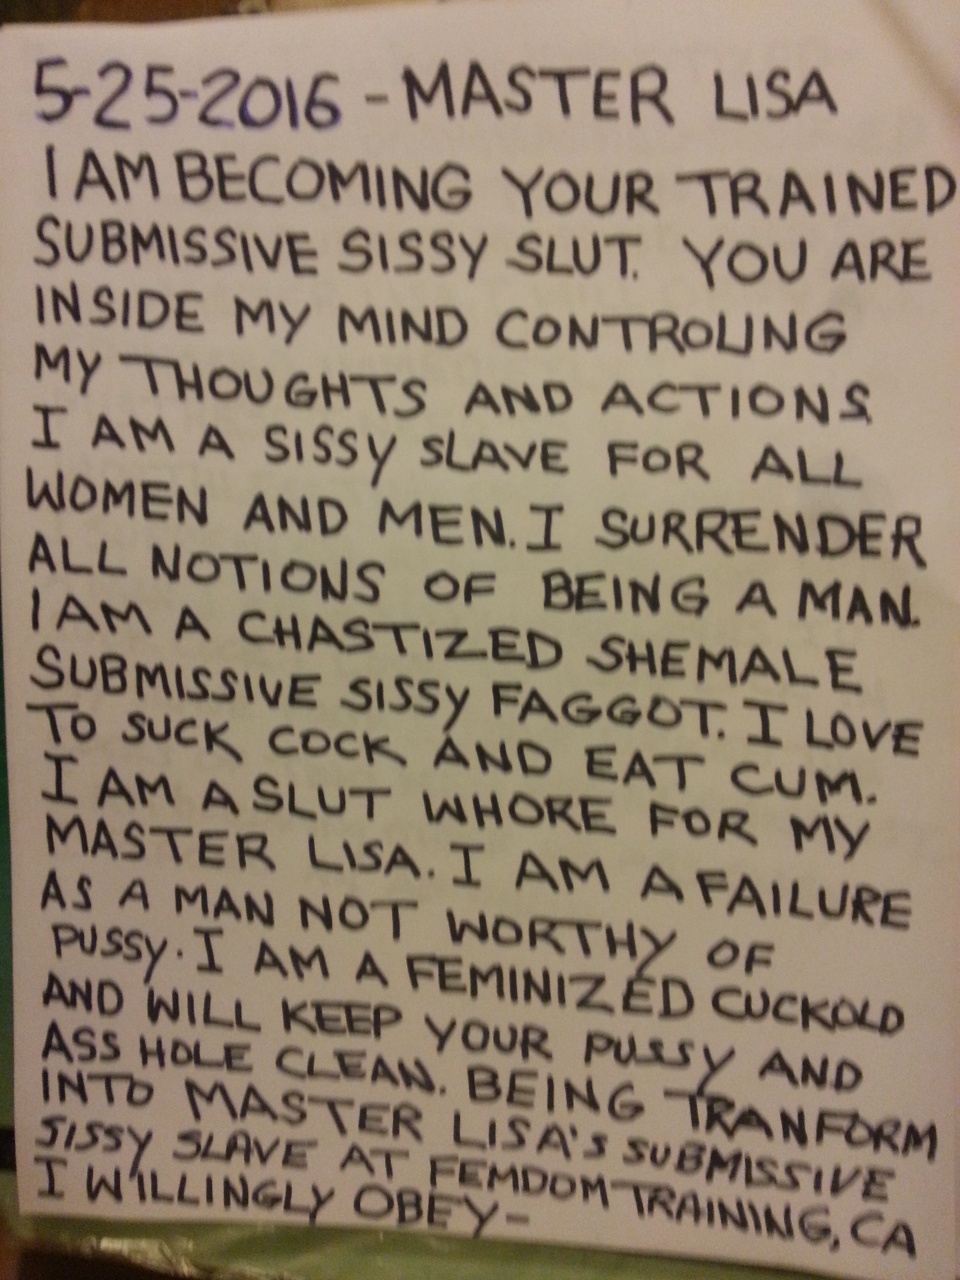 5-25-2016 - MASTER LISA
I AM BECOMING YOUR TRAINED
SUBMISSIVE SISSY SLUT. YOU ARE
INSIDE MY MIND CONTROLING
MY THOUGHTS AND ACTIONS
I AM A SISSY SLAVE FOR ALL
WOMEN AND MEN. I SURRENDER
ALL NOTIONS OF BEING A MAN.
I AM A CHASTIZED SHEMALE
SUBMISSIVE SISSY FAGGOT. I LOVE
TO SUCK COCK AND EAT CUM.
I AM A SLUT WHORE FOR MY
MASTER LISA. I AM A FAILURE
AS A MAN NOT WORTHY OF
PUSSY. I AM A FEMINIZED CUCKOLD
AND WILL KEEP YOUR PUSSY AND
ASS HOLE CLEAN. BEING TRANFORM
INTO MASTER LISA'S SUBMISSIVE
SISSY SLAVE AT FEMDOM TRAINING, CA
I WILLINGLY OBEY-